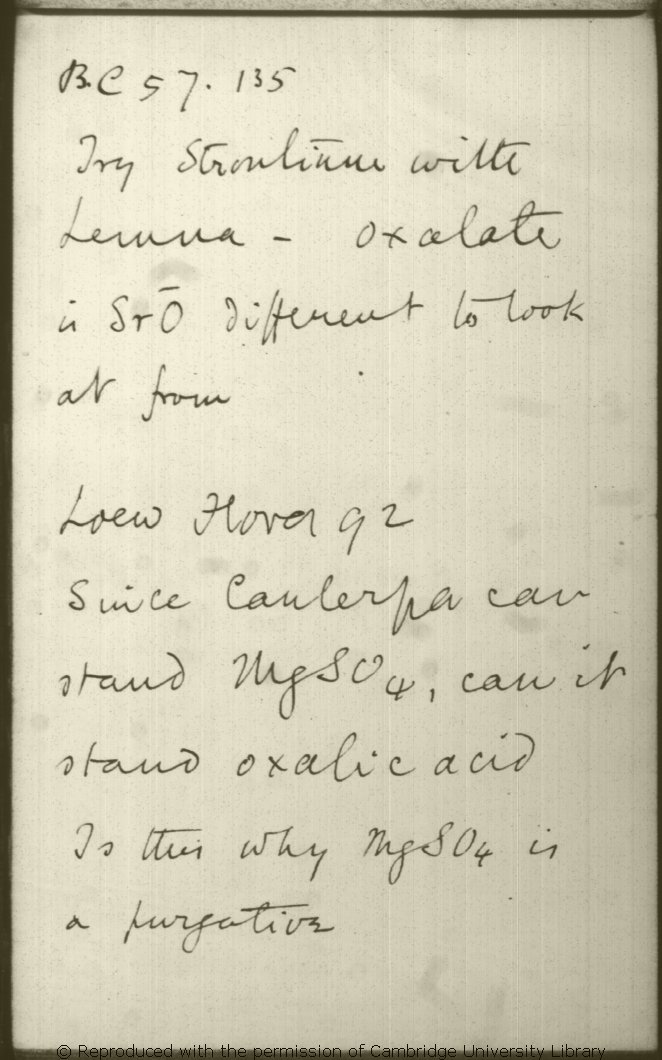 B.C 57. 135
Try Strontium with
Lemna - oxalate
is SrŌ different to look
at from
Loew Flora 92
Since Caulerpa can
stand MgSO4, can it
stand oxalic acid
Is this why MgSO4 is
a purgative
© Reproduced with the permission of Cambridge University Library